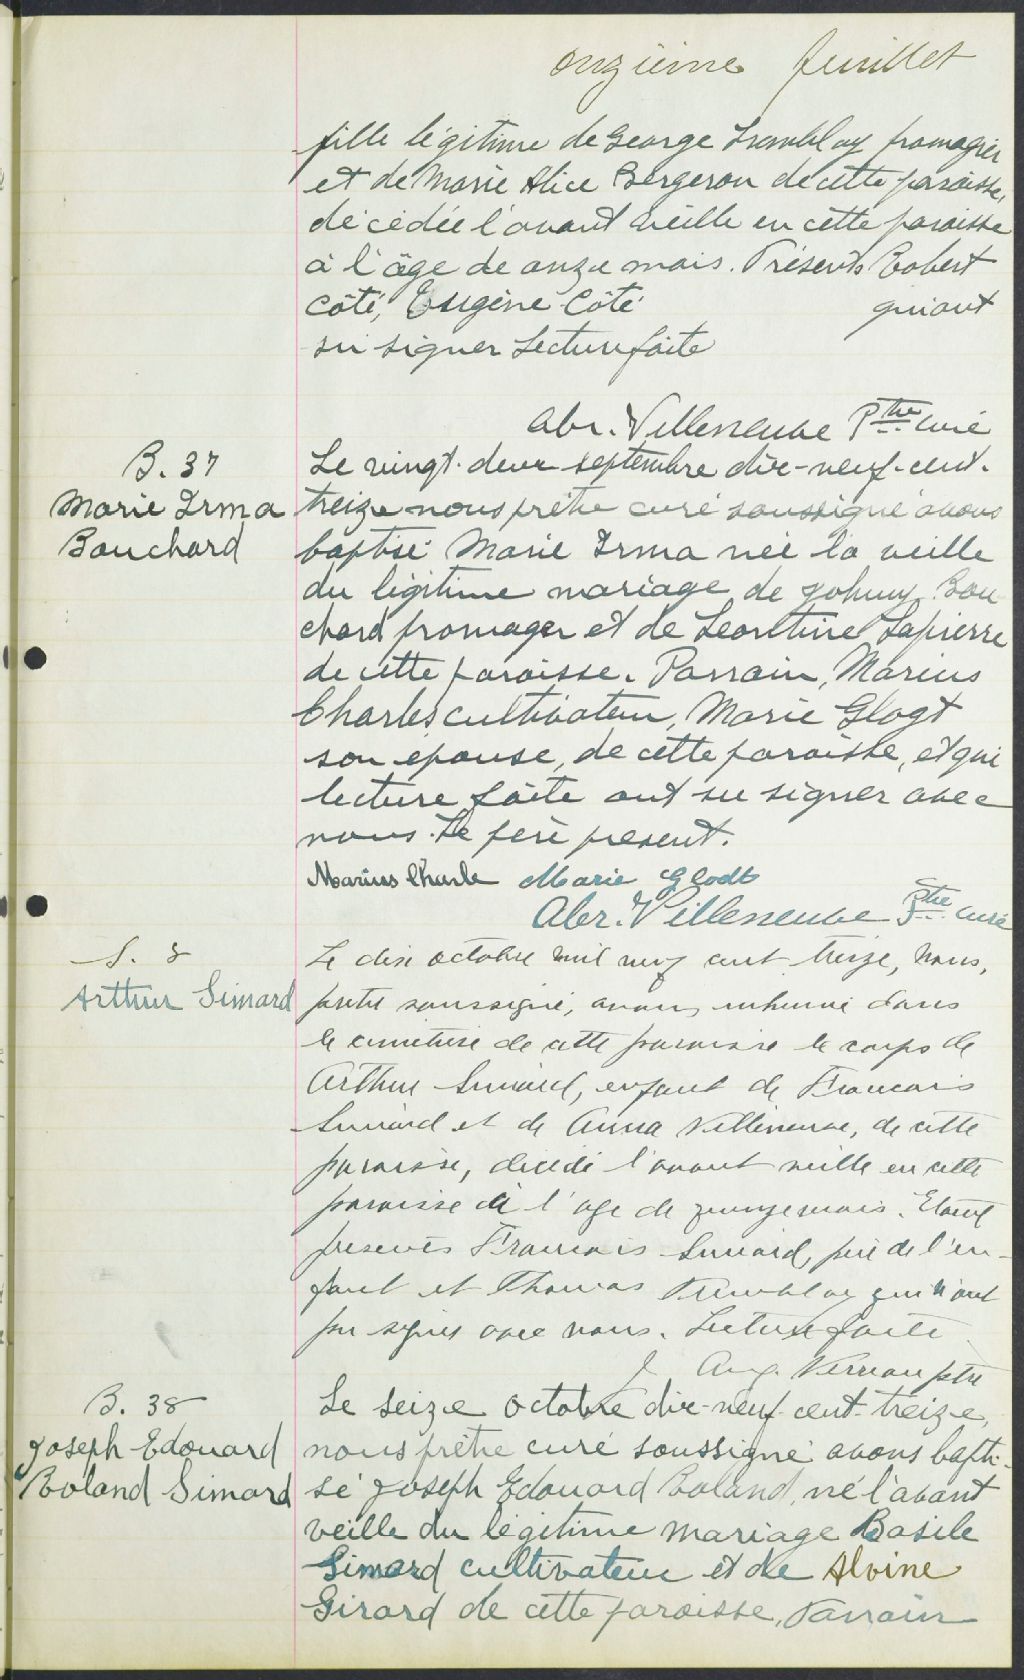 onzième feuillet
fille légitime de George Tremblay fromager
et de Marie Alice Bergeron de cette paroisse,
décédée l'avant veille en cette paroisse
à l'âge de onze mois. Présents Robert
Côté, Eugène Côté qui ont
su signer Lecture faite
Abr. Villeneuve Ptre curé
B. 37
Marie Irma
Bouchard
Le vingt-deux septembre dix-neuf-cent-
treize nous prêtre curé soussigné avons
baptisé Marie Irma née la veille
du légitime mariage de Johnny Bou
chard fromager et de Léontine Lapierre
de cette paroisse. Parrain, Marius
Charles cultivateur, Marie Glogt
son épouse, de cette paroisse, et qui
lecture faite ont su signer avec
nous. Le père présent.
Marius Charle Marie Glodt
Abr. Villeneuve Ptre curé
S. 8
Arthur Simard
Le dix octobre mil neuf cent treize, Nous,
prêtre soussigné, avons inhumé dans
le cimetière de cette paroisse le corps de
Arthur Simard, enfant de Francois
Simard et de Anna Villeneuve, de cette
paroisse, décédé l'avant veille en cette
paroisse à l'age de quinze mois. Etant
présents Francois Simard, père de l'en-
fant et Thomas Tremblay qui n'ont
pu signer avec nous. Lecture faite
J Aug. Verreau ptre
B. 38
Joseph Edouard
Roland Simard
Le seize octobre dix-neuf-cent-treize,
nous prêtre curé soussigné avons bapti-
sé Joseph Edouard Roland, né l'avant
veille du légitime mariage Basile
Simard cultivateur et de Alvine
Girard de cette paroisse, Parrain